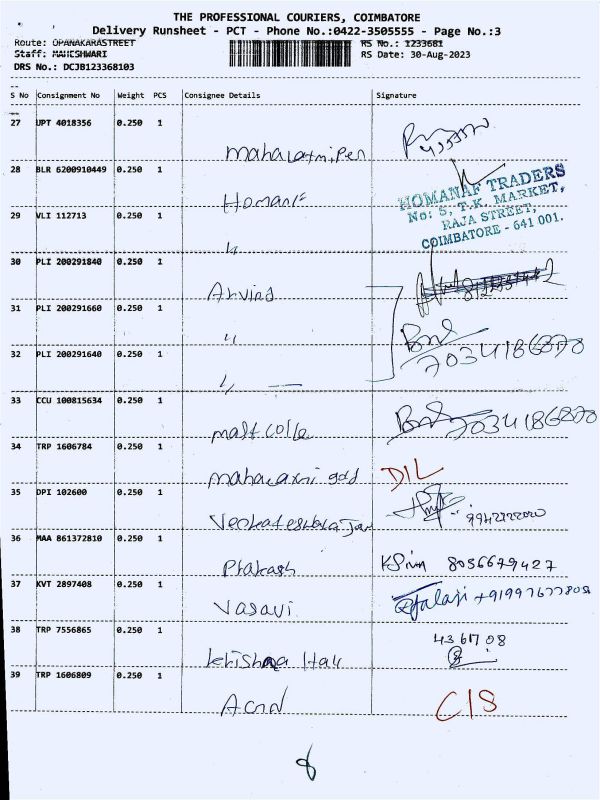 THE PROFESSIONAL COURIERS, COIMBATORE
Delivery Runsheet - PCT - Phone No.:0422-3505555 - Page No.:3
Route: OPANAKARASTREET RS No.: 1233681
Staff: MAHESHWARI RS Date: 30-Aug-2023
DRS No.: DCJB123368103
S No Consignment No Weight PCS Consignee Details Signature
27 UPT 4018356 0.250 1
28 BLR 6200910449 0.250 1
HOMANAF TRADERS
No: 5, T.K. MARKET,
RAJA STREET,
COIMBATORE - 641 001.
29 VLI 112713 0.250 1
30 PLI 200291840 0.250 1
Arvind
31 PLI 200291660 0.250 1
7034186870
32 PLI 200291640 0.250 1
33 CCU 100815634 0.250 1
7034186870
34 TRP 1606784 0.250 1
mahalaxmi gold DIL
35 DPI 102600 0.250 1
36 MAA 861372810 0.250 1
Prakash 8056679427
37 KVT 2897408 0.250 1
Vasavi
38 TRP 7556865 0.250 1
4361708
39 TRP 1606809 0.250 1
C/S
8